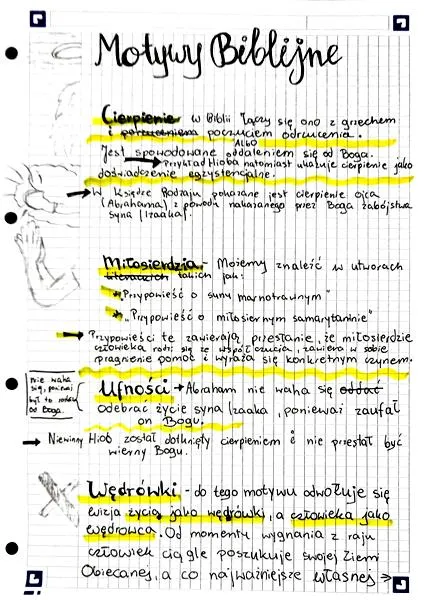 Motywy Biblijne
Cierpienie w Biblii łączy się ono z grzechem
i poczuciem odrzucenia.
ALBO
Jest spowodowane oddaleniem się od Boga.
→ Przykład Hioba natomiast ukazuje cierpienie jako
doświadczenie egzystencjalne.
→ W Księdze Rodzaju pokazane jest cierpienie ojca
(Abrahama) z powodu nakazanego przez Boga zabójstwa
syna (Izaaka).
Miłosierdzia - Możemy znaleźć w utworach
literackich takich jak:
* „Przypowieść o synu marnotrawnym"
* „Przypowieść o miłosiernym samarytaninie"
→ Przypowieści te zawierają przesłanie, że miłosierdzie
człowieka rodzi się ze współczucia, zawiera w sobie
pragnienie pomocy i wyraża się konkretnym czynem.
nie waha
się, ponieważ
był to rozkaz
od Boga.
Ufności → Abraham nie waha się oddać
odebrać życie syna Izaaka, ponieważ zaufał
on Bogu.
→ Niewinny Hiob został dotknięty cierpieniem i nie przestał być
wierny Bogu.
Wędrówki - do tego motywu odwołuje się
wizja życia jako wędrówki, a człowieka jako
wędrowca. Od momentu wygnania z raju
człowiek ciągle poszukuje swojej Ziemi
Obiecanej, a co najważniejsze własnej →